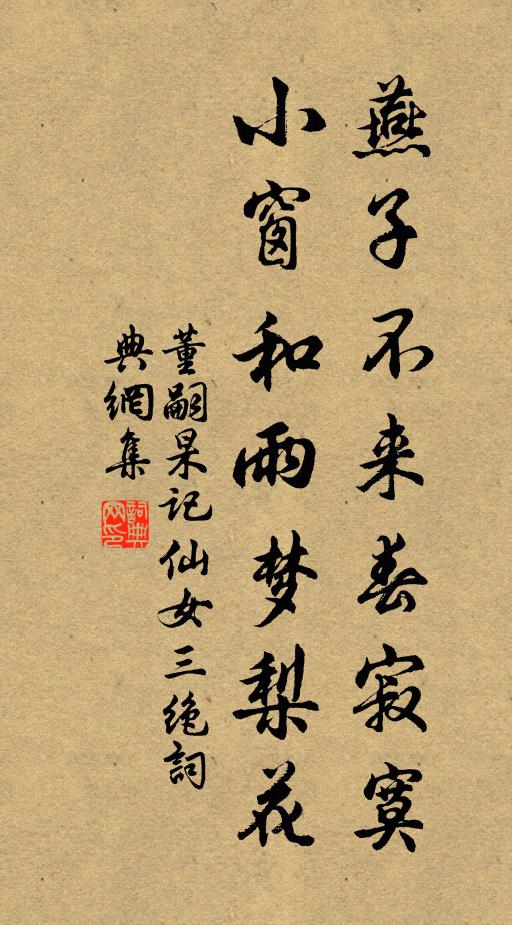 燕子不来春寂寞
小窗和雨梦梨花
董嗣杲记仙女三绝詞
典網集
詞典
网印